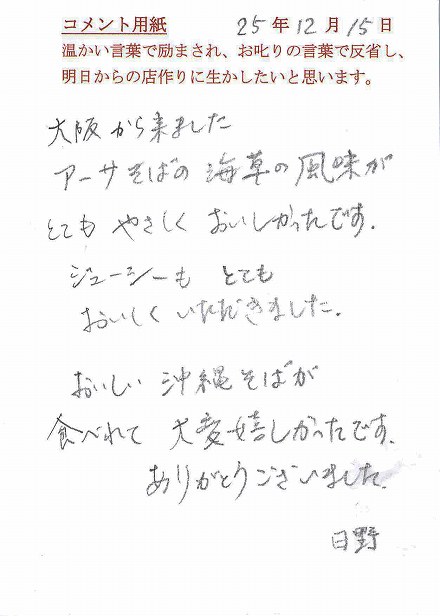 コメント用紙 25年12月15日
温かい言葉で励まされ、お叱りの言葉で反省し、
明日からの店作りに生かしたいと思います。
大阪から来ました
アーサそばの海草の風味が
とてもやさしくおいしかったです.
ジューシーもとても
おいしくいただきました.
おいしい沖縄そばが
食べれて大変嬉しかったです.
ありがとうございました.
日野